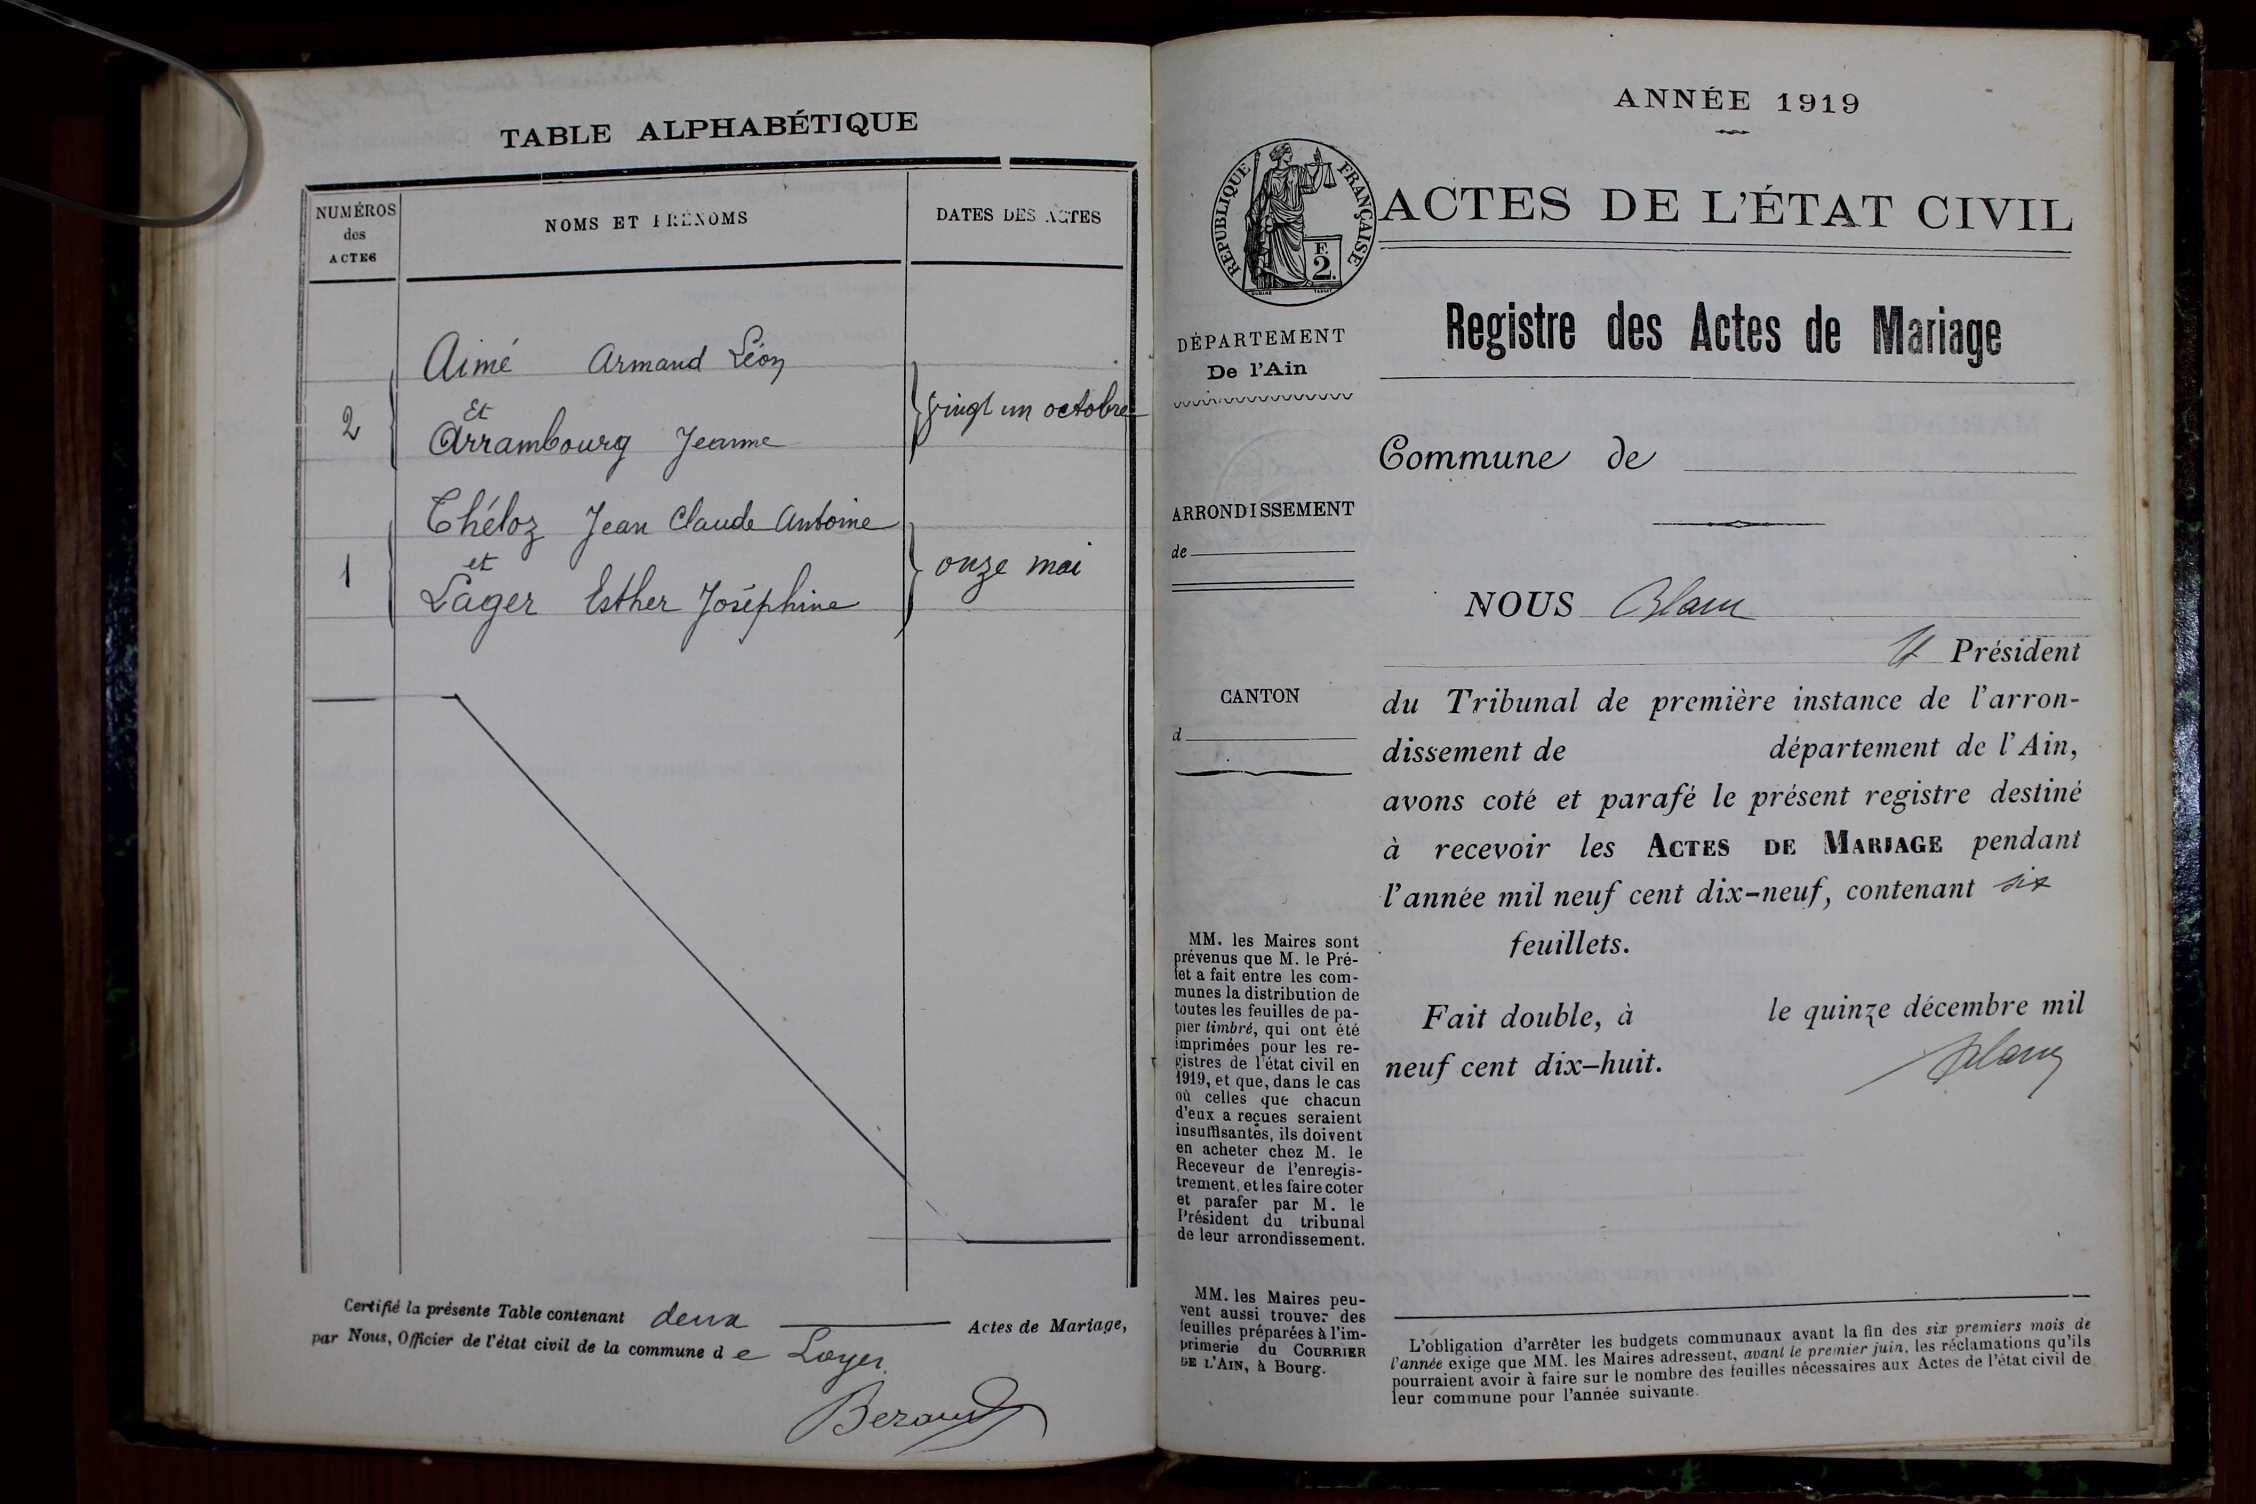 TABLE ALPHABÉTIQUE
NUMÉROS
des
ACTES
NOMS ET PRÉNOMS
DATES DES ACTES
Aimé Armand Léon
Et
2
vingt un octobre
Arrambourg Jeanne
Théloz Jean Claude Antoine
et
1
onze mai
Lager Esther Joséphine
Certifié la présente Table contenant deux Actes de Mariage,
par Nous, Officier de l'état civil de la commune de Loyes
Beraud
ANNÉE 1919
RÉPUBLIQUE FRANÇAISE
E
2.
ACTES DE L'ÉTAT CIVIL
DÉPARTEMENT
De l'Ain
ARRONDISSEMENT
de
CANTON
d
MM. les Maires sont
prévenus que M. le Pré-
fet a fait entre les com-
munes la distribution de
toutes les feuilles de pa-
pier timbré, qui ont été
imprimées pour les re-
gistres de l'état civil en
1919, et que, dans le cas
où celles que chacun
d'eux a reçues seraient
insuffisantes, ils doivent
en acheter chez M. le
Receveur de l'enregis-
trement, et les faire coter
et parafer par M. le
Président du tribunal
de leur arrondissement.
MM. les Maires peu-
vent aussi trouver des
feuilles préparées à l'im-
primerie du COURRIER
DE L'AIN, à Bourg.
Registre des Actes de Mariage
Commune de
NOUS Blanc
Président
du Tribunal de première instance de l'arron-
dissement de département de l'Ain,
avons coté et parafé le présent registre destiné
à recevoir les ACTES DE MARIAGE pendant
l'année mil neuf cent dix-neuf, contenant six
feuillets.
Fait double, à le quinze décembre mil
neuf cent dix-huit.
Blanc
L'obligation d'arrêter les budgets communaux avant la fin des six premiers mois de
l'année exige que MM. les Maires adressent, avant le premier juin, les réclamations qu'ils
pourraient avoir à faire sur le nombre des feuilles nécessaires aux Actes de l'état civil de
leur commune pour l'année suivante.